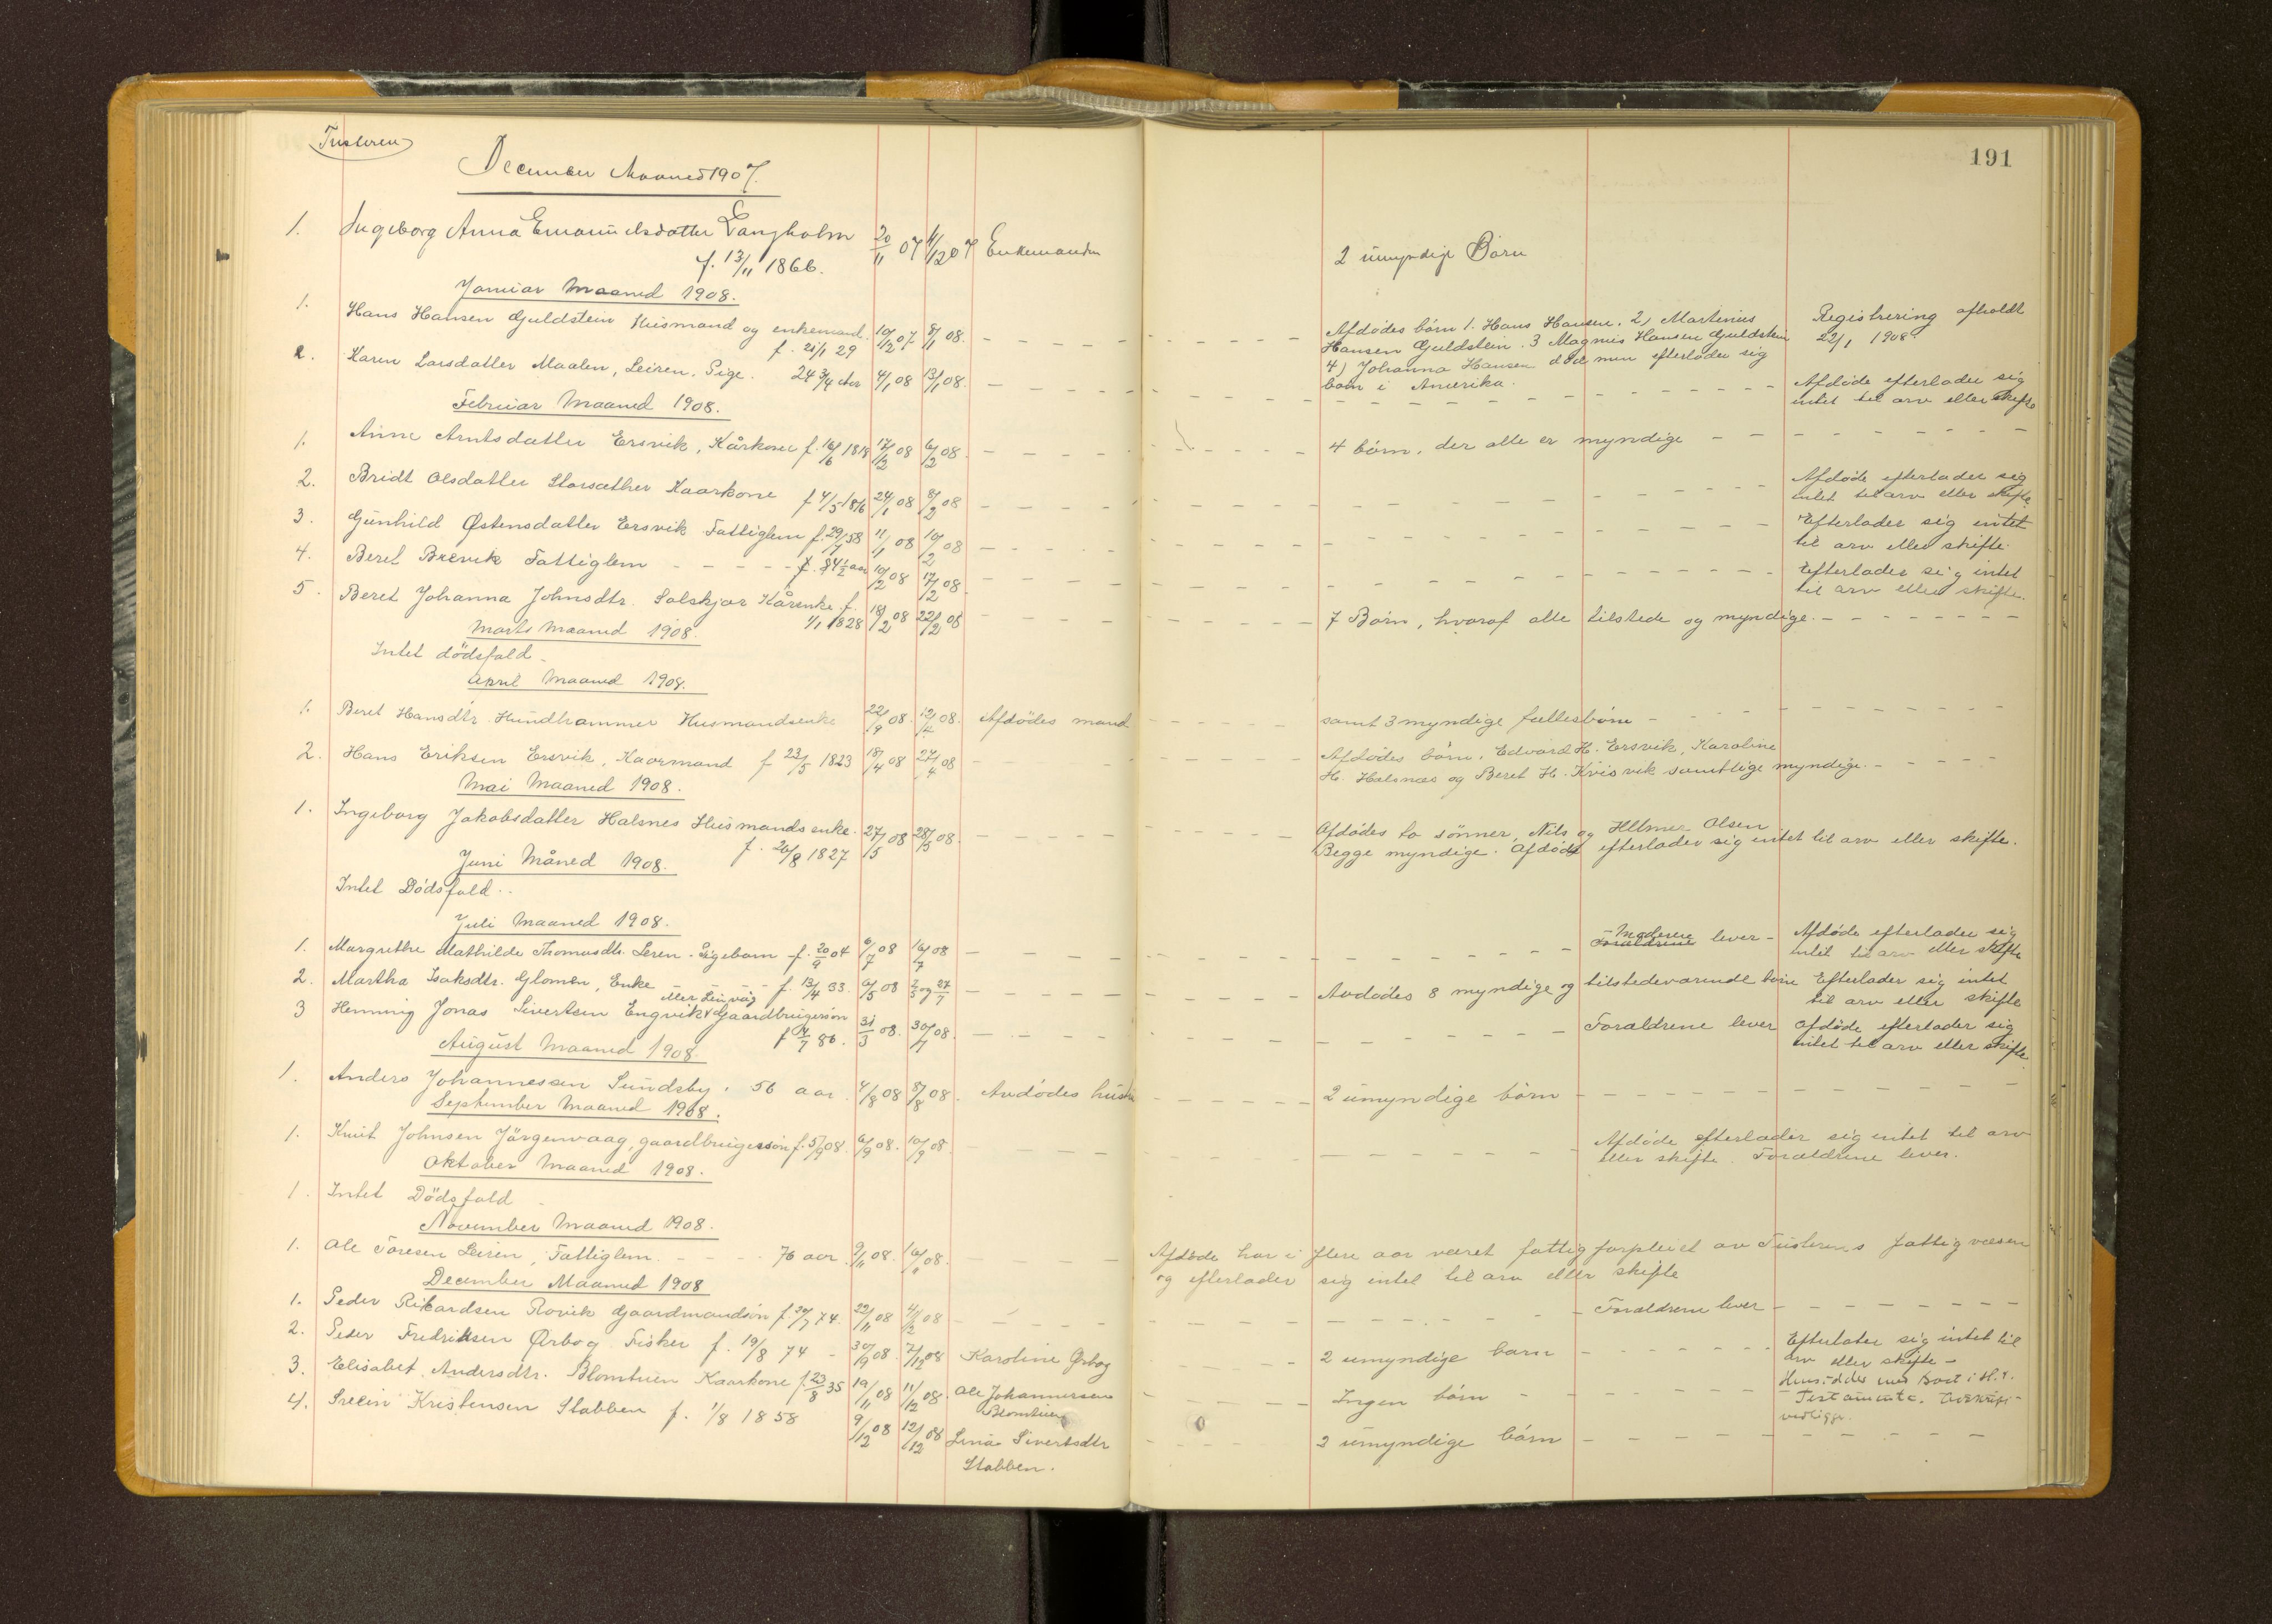 Tusteren
191
December Maaned 1907.
1. Ingeborg Anna Emanuelsdatter Langholm 20/11 07 4/12 07 Enkemanden 2 umyndige Børn
f. 13/11 1866.
Januar Maaned 1908.
1. Hans Hansen Guldstein Husmand og enkemand. 10/12 07 8/1 08. – – – Afdødes börn 1. Hans Hansen. 2) Martinius Registrering afholdt
f. 21/1 29 Hansen Guldstein. 3 Magnus Hansen Guldstein 22/1 1908.
4) Johanna Hansen død men efterlader sig
barn i Amerika.
2. Karen Larsdatter Maalen, Leiren. Pige. 24 3/4 aar 4/1 08 13/1 08. – – – Afdøde efterlader sig
intet til arv eller skifte
Februar Maaned 1908.
1. Anne Arntsdatter Ersvik, Kårkone f. 16/6 1818 17/12 08 6/2 08. – – – 4 börn, der alle er myndige – – –
2. Bridt Olsdatter Storsæther Kaarkone f 4/5 1816 24/1 08 8/2 08 – – – Afdøde efterlader sig
intet til arv eller skifte
3. Gunhild Østensdatter Ersvik Fattiglem f. 29/4 58 11/1 08 10/2 08 – – – Efterlader sig intet
til arv eller skifte.
4. Beret Brevik Fattiglem – – – f. 84 1/2 aar 10/2 08 17/2 08. – – – Efterlader sig intet
til arv eller skifte.
5. Beret Johanna Johnsdtr. Solskjær Kårenke. f. 18/2 08 22/2 08 – – – 7 Børn, hvoraf alle tilstede og myndige. – – –
1/1 1828
Marts Maaned 1908.
Intet dödsfald –
April Maaned 1908.
1. Beret Hansdtr. Hundhammer Husmandsenke 22/9 08. 12/4 08. Afdödes mand – – – samt 3 myndige fællesbörn – – –
2. Hans Eriksen Ersvik, Kaarmand f 23/5 1823 18/4 08 27/4 08 – – – Afdödes börn, Edvard H. Ersvik, Karoline
H. Halsnæs og Beret H. Kvisvik samtlige myndige. – – –
Mai Maaned 1908.
1. Ingeborg Jakobsdatter Halsnes Husmandsenke. 27/5 08 28/5 08. – – – Afdödes to sönner, Nils og Hilmer Olsen
f. 20/8 1827 Begge myndige. Afdöde efterlader sig intet til arv eller skifte.
Juni Måned 1908.
Intet Dödsfald. .
Juli Maaned 1908.
1. Margrethe Mathilde Thomasdtr. Leren. Pigebarn f. 20/9 04 6/7 08 16/7 08 – – – Moderen lever – Afdøde efterlader sig
Forældrene intet til arv eller skifte
2. Martha Isaksdtr. Glomen, Enke – f. 13/4 33. 6/5 08 2/5 og 27/7 – – – Avdödes 8 myndige og tilstedeværende börn Efterlader sig intet
til arv eller skifte
eller Leirvåg
3 Henning Jonas Sivertsen Engvik Gaardbrugersön 31/3 08. 30/7 08. – – – Forældrene lever Afdöde efterlader sig
f 14/7 86. intet til arv eller skifte
August Maaned 1908.
1. Anders Johannessen Sundsby. 56 aar. 4/8 08 8/8 08. Avdödes hustru – – – 2 umyndige börn – – –
September Maaned 1908.
1. Knut Johnsen Jörgenvaag, gaardbrugersön f. 5/9 08. 6/9 08. 10/9 08. – – – Afdöde efterlader sig intet til arv
eller skifte. Forældrene lever.
Oktober Maaned 1908.
1. Intet Dödsfald –
November Maaned 1908.
1. Ole Toresen Leiren, Fattiglem. – – – 76 aar 9/11 08. 16/11 08. – – – Afdöde har i flere aar været fattigforpleiet av Tusterens Fattigvæsen
og efterlader sig intet til arv eller skifte
December Maaned 1908
1. Peder Rikardsen Rovik Gaardmandsön f. 30/7 74. 22/11 08 4/12 08 – – – Forældrene lever – – –
2. Peder Fredriksen Ørbog Fisker f. 19/8 74 – 30/9 08. 7/12 08 Karoline Ørbog – – – 2 umyndige barn – – – Efterlater sig intet til
arv eller skifte –
3. Elisabet. Andersdtr. Blomtuen Kaarkone f. 23/8 35 19/11 08 11/12 08. Ole Johannessen – – – Ingen börn – – –
Blomtuen
Testamente.
4. Kristensen Stabben f. 1/8 1858 9/12 08 12/12 08 Lina Sivertsdtr – – – 3 umyndige börn – – –
Stabben.